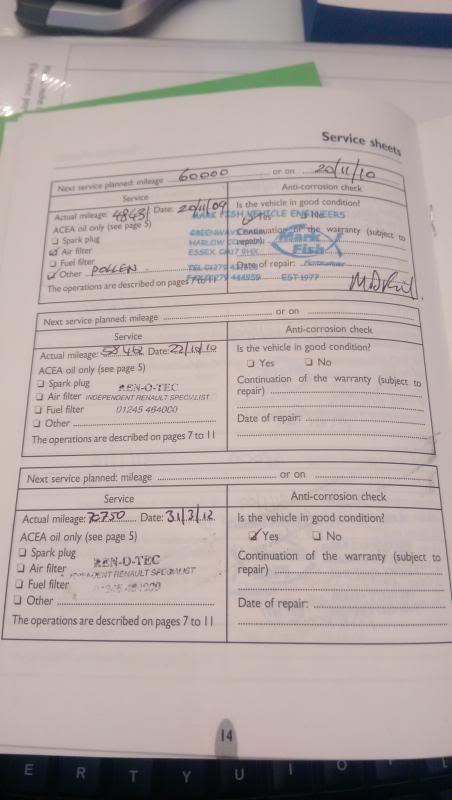 Service sheets
Next service planned: mileage 60000 or on 20/11/10
Service
Anti-corrosion check
Actual mileage: 48431 Date: 20/11/09
Is the vehicle in good condition?
MARK FISH VEHICLE ENGINEERS
ACEA oil only (see page 5)
Yes
Spark plug
GREENWAY
Continuation of the warranty (subject to
Air filter
HARLOW
repair)
Mark
Fish
Fuel filter
ESSEX
Other POLLEN
TEL 01279
Date of repair:
The operations are described on pages 7 to 11
EST 1977
Next service planned: mileage or on
Service
Anti-corrosion check
Actual mileage: Date: 22/10/10
Is the vehicle in good condition?
ACEA oil only (see page 5)
Yes No
Spark plug
REN-O-TEC
Continuation of the warranty (subject to
Air filter INDEPENDENT RENAULT SPECIALIST
repair)
Fuel filter 01245 464000
Other
Date of repair:
The operations are described on pages 7 to 11
Next service planned: mileage or on
Service
Anti-corrosion check
Actual mileage: 70750 Date: 31/3/12
Is the vehicle in good condition?
ACEA oil only (see page 5)
Yes No
Spark plug
REN-O-TEC
Continuation of the warranty (subject to
Air filter INDEPENDENT RENAULT SPECIALIST
repair)
Fuel filter
Other
Date of repair:
The operations are described on pages 7 to 11
14
E R T Y U I O